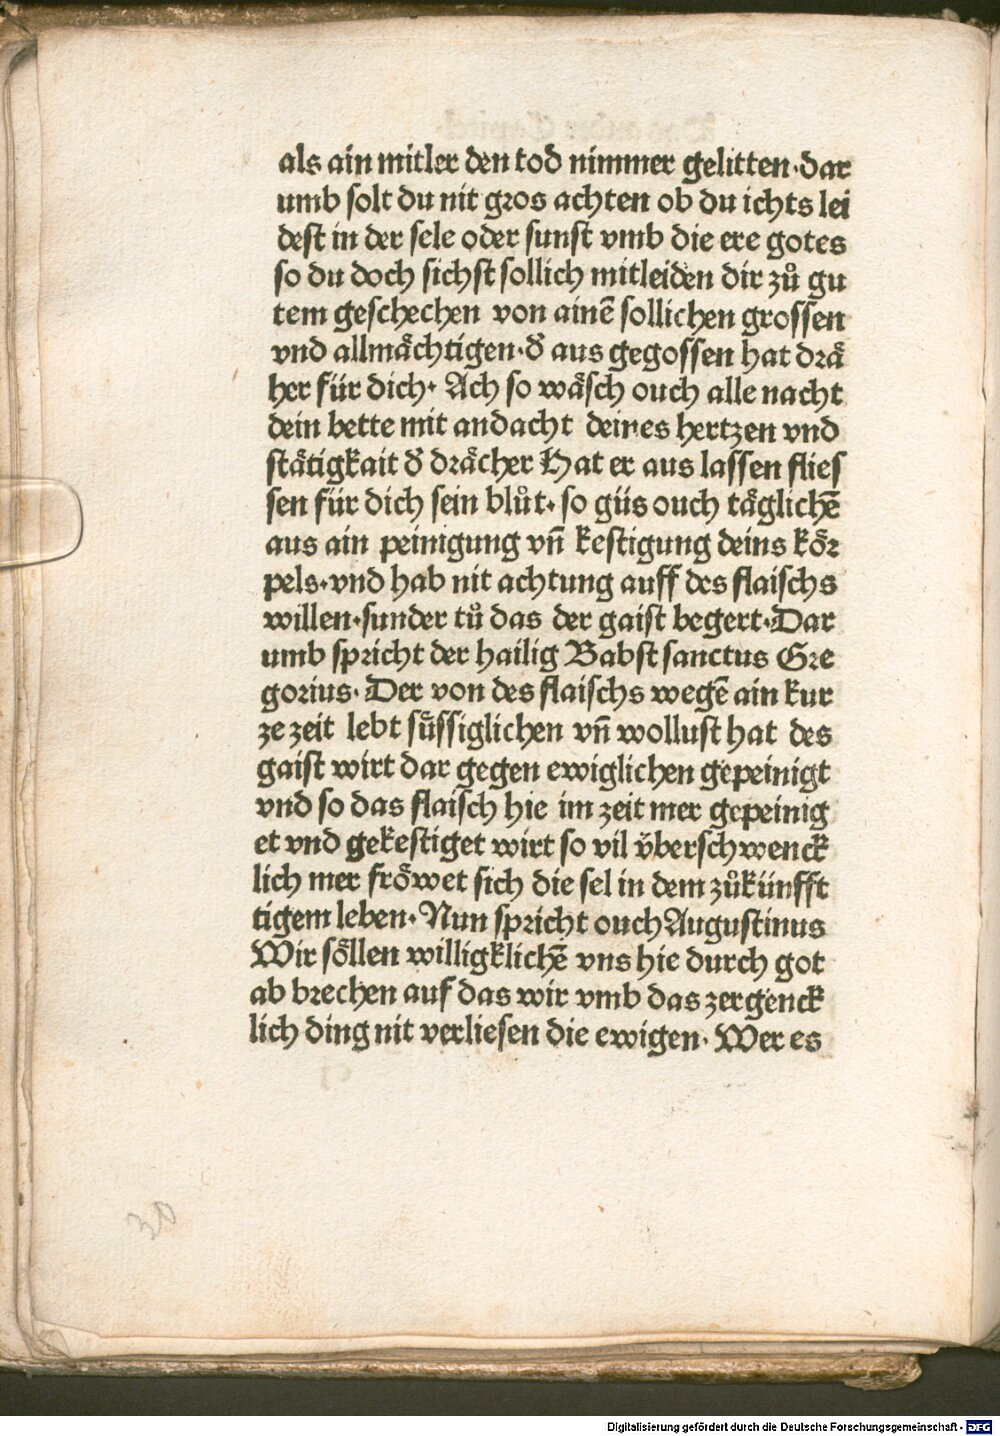 als ain mitler den tod nimmer gelitten·dar
umb solt du nit gros achten ob du ichts lei
dest in der sele oder sunst vmb die ere gotes
so du doch sichst sollich mitleiden dir zů gu
tem geschechen von ainē sollichen grossen
vnd allmächtigen·đ aus gegossen hat drä
her für dich· Ach so wäsch ouch alle nacht
dein bette mit andacht deines hertzen vnd
stätigkait đ drächer Hat er aus lassen flies
sen für dich sein blůt· so güs ouch täglichē
aus ain peinigung vn̄ kestigung deins kör
pels·vnd hab nit achtung auff des flaischs
willen·sunder tů das der gaist begert·Dar
umb spricht der hailig Babst sanctus Gre
gorius· Der von des flaischs wegē ain kur
ze zeit lebt süssiglichen vn̄ wollust hat des
gaist wirt dar gegen ewiglichen gepeinigt
vnd so das flaisch hie im zeit mer gepeinig
et vnd gekestiget wirt so vil v̈berschwenck
lich mer fröwet sich die sel in dem zůkünfft
tigem leben· Nun spricht ouch Augustinus
Wir söllen willigklichē vns hie durch got
ab brechen auf das wir vmb das zergenck
lich ding nit verliesen die ewigen· Wer es
Digitalisierung gefördert durch die Deutsche Forschungsgemeinschaft - DFG